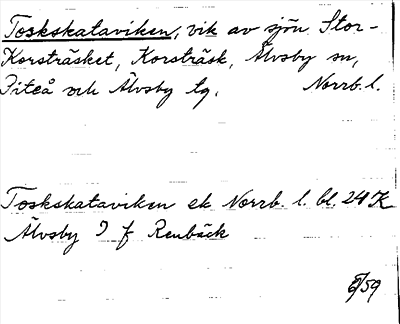 Toskskataviken, vik av sjön Stor-
Korsträsket, Korsträsk, Älvsby sn,
Piteå och Älvsby tg. Norrb. l.
Toskskataviken ek Norrb. l. bl. 24 K
Älvsby 9 f Renbäck
/59